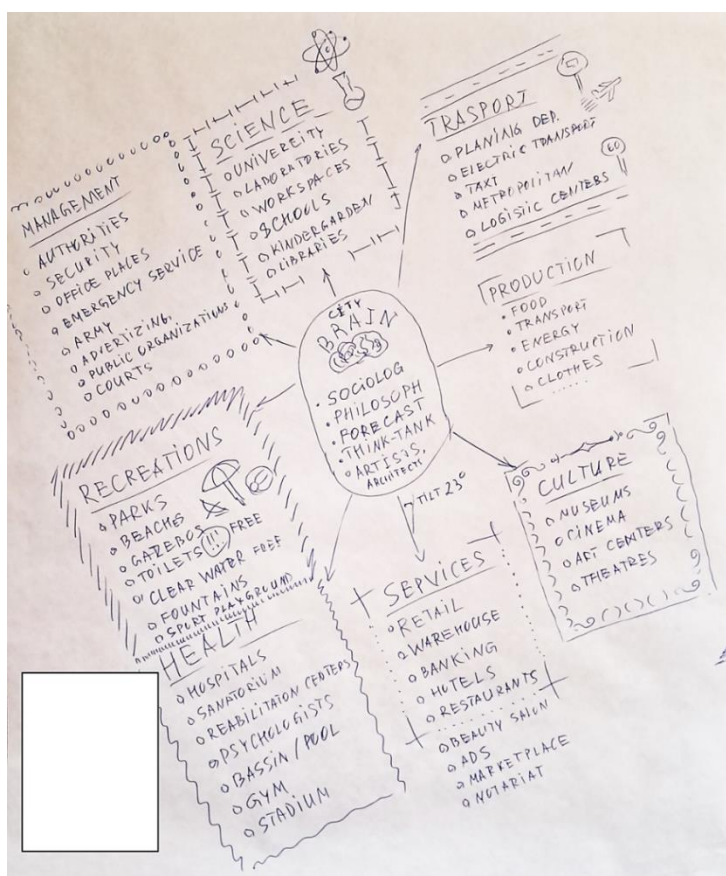 MANAGEMENT
AUTHORITIES
SECURITY
OFFICE PLACES
EMERGENCY SERVICE
ARMY
ADVERTIZING,
PUBLIC ORGANIZATIONS
COURTS
SCIENCE
UNIVERCITY
LABORATORIES
WORKSPACES
SCHOOLS
KINDERGARDEN
LIBRARIES
TRASPORT
PLANING DEP.
ELECTRIC TRANSPORT
TAXI
METROPOLITAN
LOGISTIC CENTERS
60
PRODUCTION
FOOD
TRANSPORT
ENERGY
CONSTRUCTION
CLOTHES
......
CITY
BRAIN
SOCIOLOG
PHILOSOPH
FORECAST
THINK-TANK
ARTISTS,
ARCHITECH
TILT 23°
RECREATIONS
PARKS
BEACHES
GAZEBOS
TOILETS !!! FREE
CLEAR WATER FREE
FOUNTAINS
SPORT PLAYGROUND
CULTURE
MUSEUMS
CINEMA
ART CENTERS
THEATRES
HEALTH
HOSPITALS
SANATORIUM
REABILITATON CENTERS
PSYCHOLOGISTS
BASSIN / POOL
GYM
STADIUM
SERVICES
RETAIL
WAREHOUSE
BANKING
HOTELS
RESTAURANTS
BEAUTY SALON
ADS
MARKETPLACE
NOTARIAT